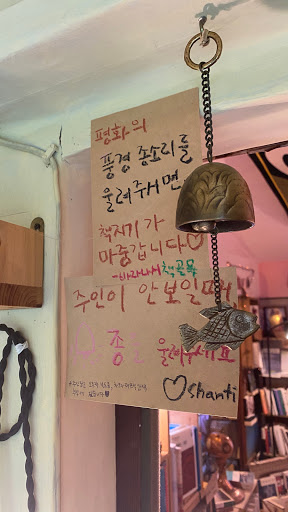 평화의
풍경 종소리를
울려주시면
책지기가
마중갑니다♡
-바라나시책골목
주인이 안보일때,
♡ 종을 울려주세요
♡Shanti